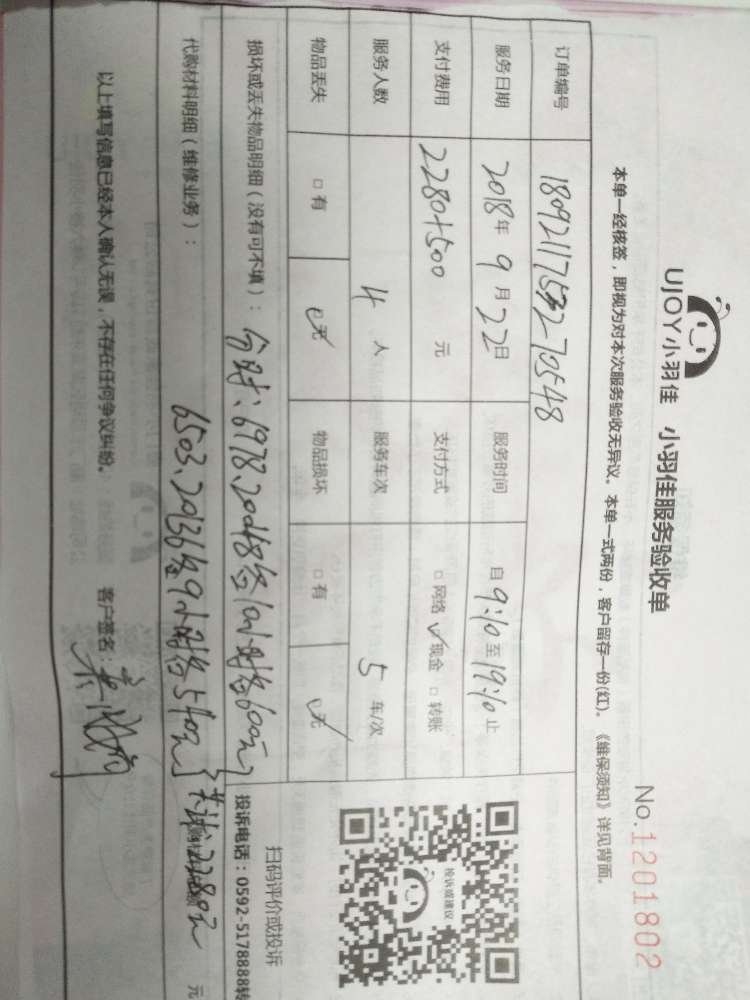 UJOY小羽佳 小羽佳服务验收单
No.1201802
本单一经核签，即视为对本次服务验收无异议。本单一式两份，客户留存一份(红)。《维保须知》详见背面。
订单编号
服务日期 2018年 9月22日 服务时间 自 9:10 至 19:10 止
支付费用 2280+500 元 支付方式 □网络 ✓现金 □转账
服务人数 4 人 服务车次 5 车/次
物品丢失 □有 ✓无 物品损坏 □有 ✓无
损坏或丢失物品明细（没有可不填）： 6978、20048各10小时各600元
代购材料明细（维修业务）： 6503、20136各9小时各540元 共计：2280元 元
以上填写信息已经本人确认无误，不存在任何争议纠纷。 客户签名：
投诉或建议
扫码评价或投诉
投诉电话：0592-5178888转